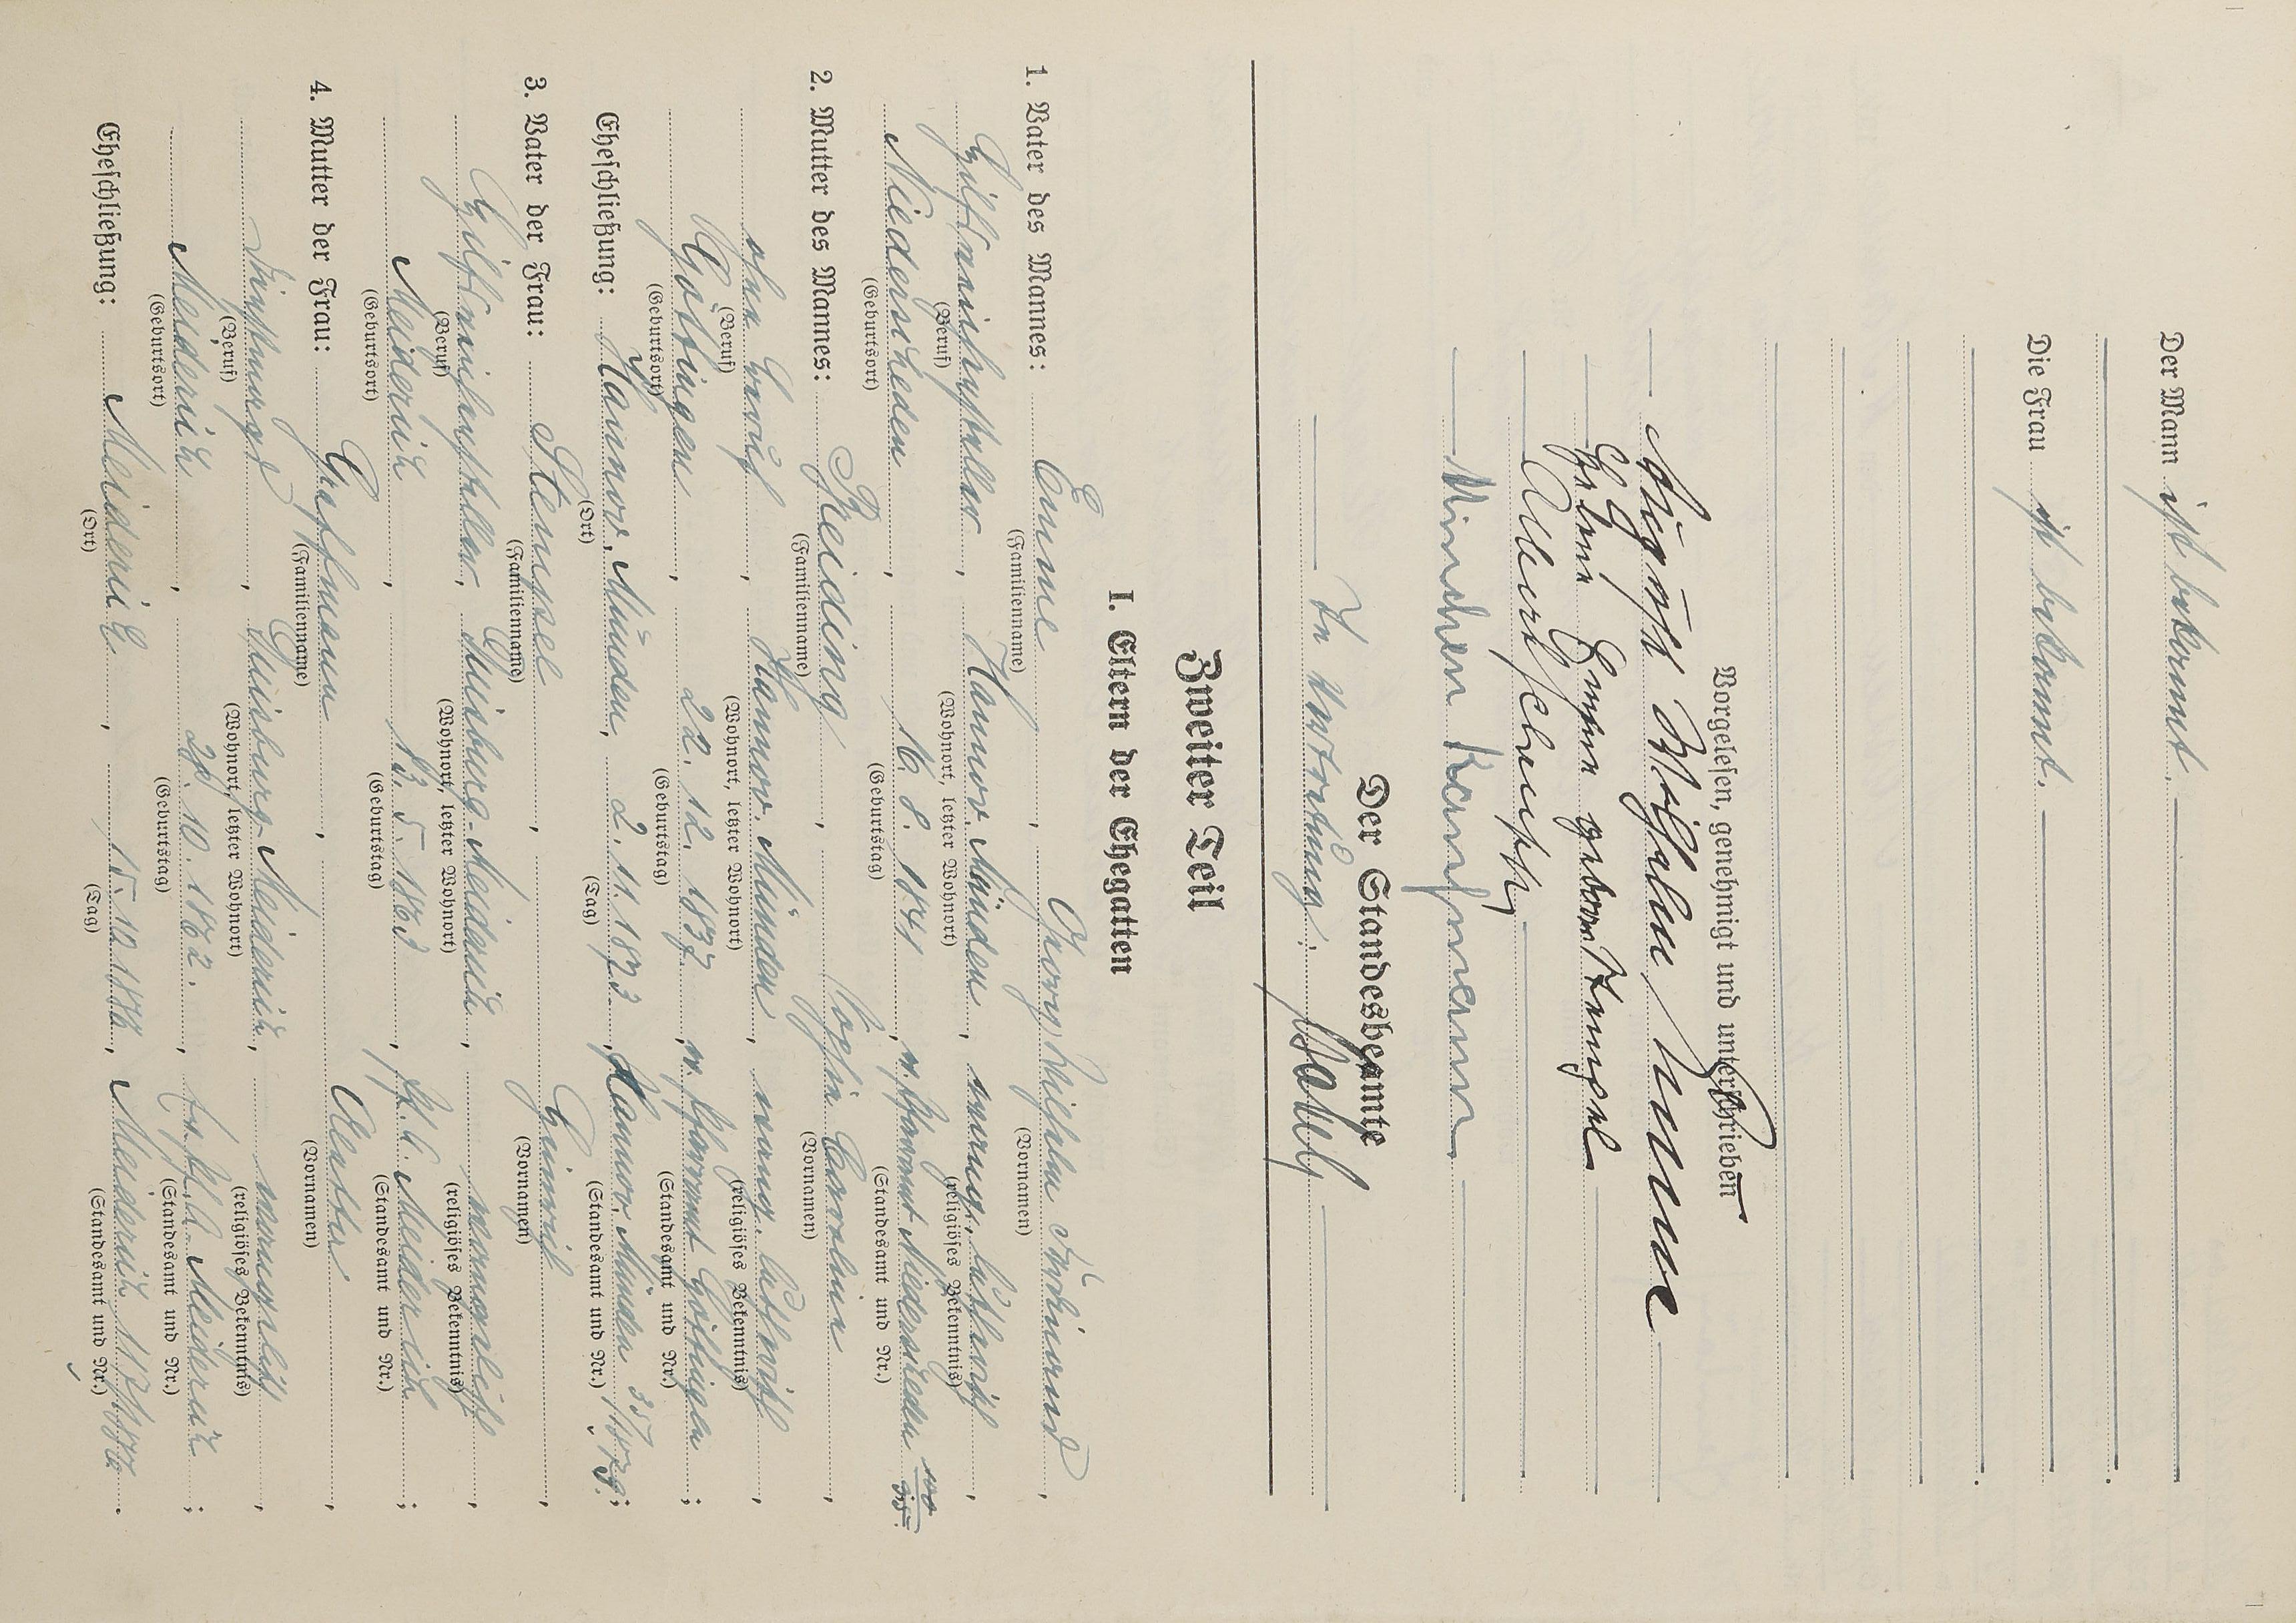 Der Mann ist bekannt.
Die Frau ist bekannt.
Vorgelesen, genehmigt und unterschrieben
August Wilhelm Emme
Helene Emme geborene Stempel
Albert Schrupp
Minchen Kaufmann
Der Standesbeamte
In Vertretung:
Zweiter Teil
I. Eltern der Ehegatten
1. Vater des Mannes: Emme, Georg Wilhelm Eduard,
(Familienname) (Vornamen)
Hilfsweichensteller, Hannov. Münden, evang. lutherisch,
(Beruf) (Wohnort, letzter Wohnort) (religiöses Bekenntnis)
Niederscheden, 16. 8. 1841, ev. Pfarramt Niederscheden
(Geburtsort) (Geburtstag) (Standesamt und Nr.)
2. Mutter des Mannes: Reiding, Sophie Caroline,
(Familienname) (Vornamen)
ohne Beruf, Hannov. Münden, evang. lutherisch,
(Beruf) (Wohnort, letzter Wohnort) (religiöses Bekenntnis)
Göttingen, 22. 12. 1837, ev. Pfarramt Göttingen;
(Geburtsort) (Geburtstag) (Standesamt und Nr.)
Eheschließung: Hannov. Münden, 2. 11. 1873, Hannov. Münden 35/1873;
(Ort) (Tag) (Standesamt und Nr.)
3. Vater der Frau: Stempel, Heinrich,
(Familienname) (Vornamen)
Hilfsweichensteller, Duisburg-Meiderich, evangelisch,
(Beruf) (Wohnort, letzter Wohnort) (religiöses Bekenntnis)
Meiderich, 13. 5. 1863, St. A. Meiderich;
(Geburtsort) (Geburtstag) (Standesamt und Nr.)
4. Mutter der Frau: , ,
(Familienname) (Vornamen)
, Duisburg-Meiderich, evangelisch,
(Beruf) (Wohnort, letzter Wohnort) (religiöses Bekenntnis)
Meiderich, 28. 10. 1862, St. A. Meiderich;
(Geburtsort) (Geburtstag) (Standesamt und Nr.)
Eheschließung: Meiderich, 15. 10. 1886, Meiderich
(Ort) (Tag) (Standesamt und Nr.)